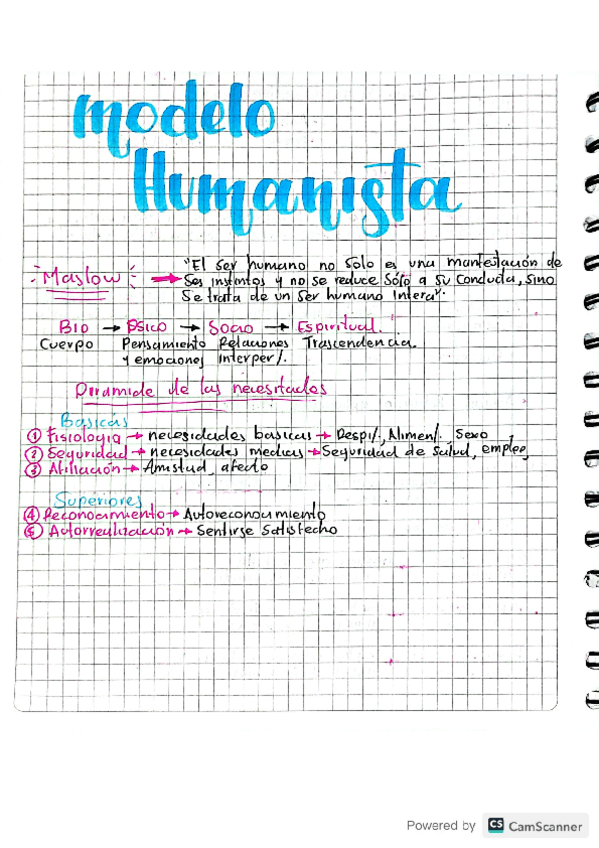 modelo
Humanista
Maslow → "El ser humano no solo es una manifestación de
ses instintos y no se reduce sólo a su conducta, sino
se trata de un ser humano integral".
Bio → Psico → Socio → Espiritual.
Cuerpo Pensamiento Relaciones Trascendencia.
y emociones interper/.
Piramide de las necesitades
Basicas
① Fisiologia → necesidades basicas → Respi/, Alimen/. Sexo
② Seguridad → necesidades medias → Seguridad de salud, empleo,
③ Afiliación → Amistad, afecto
Superiores
④ Reconocimiento → Autoreconocimiento
⑤ Autorrealización → Sentirse Satisfecho
Powered by CS CamScanner